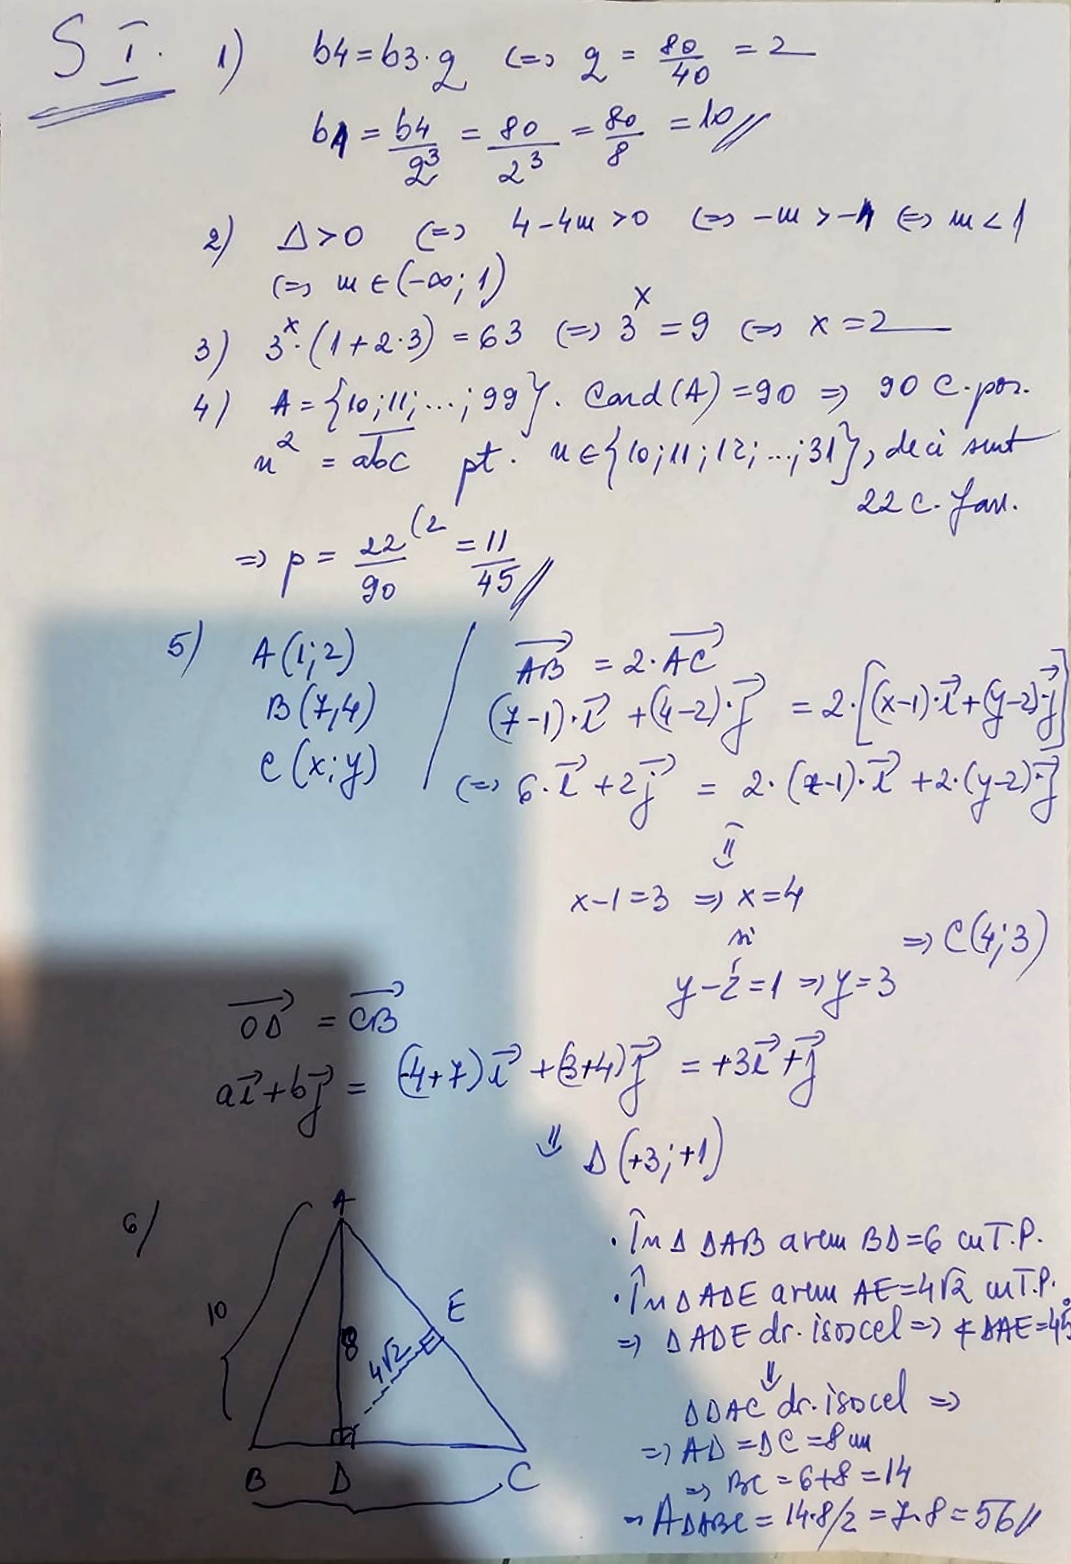 S I. 1) b4 = b3·q (=) q = 80/40 = 2
b1 = b4/q³ = 80/2³ = 80/8 = 10
2) Δ>0 (=) 4-4m>0 (=) -m>-1 (=) m<1
(=) m∈(-∞; 1)
3) 3^x·(1+2·3) = 63 (=) 3^x = 9 (=) x = 2
4) A = {10;11;...;99}. Card(A) = 90 => 90 c.pos.
n² = abc pt. n∈{10;11;12;...;31}, deci sunt
22 c. fav.
=> p = 22/90 (2 = 11/45
5) A(1;2)
B(7,4)
C(x;y)
AB = 2·AC
(7-1)·i + (4-2)·j = 2·[(x-1)·i+(y-2)·j]
(=) 6·i + 2j = 2·(x-1)·i + 2·(y-2)·j
⇓
x-1=3 => x=4
și
y-2=1 => y=3
=> C(4;3)
OD = CB
ai+bj = (-4+7)i + (-3+4)j = +3i+j
⇓ D(+3;+1)
6)
A
10
8
4√2
E
B D C
· În Δ DAB avem BD=6 cu T.P.
· În Δ ADE avem AE=4√2 cu T.P.
=> Δ ADE dr. isoscel => ∢DAE=45°
⇓
Δ DAC dr. isocel =>
=> AD = DC = 8 cm
=> BC = 6+8 = 14
=> AΔABC = 14·8/2 = 7·8 = 56